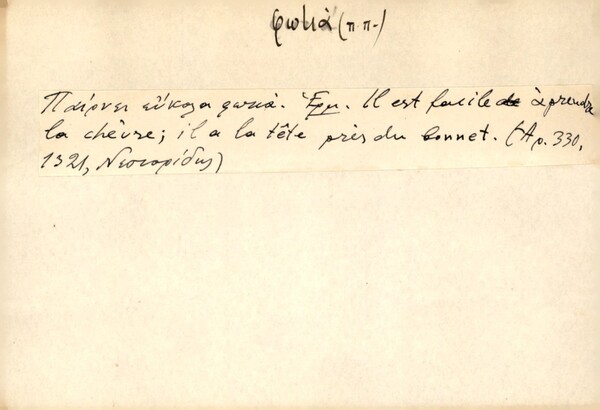 φωτιά (π π.)
Παίρνει εὔκολα φωτιά. Ἑρμ. Il est facile de à prendre
la chèvre; il a la tête près du bonnet. (Ἀρ. 330,
1321, Νεστορίδης)